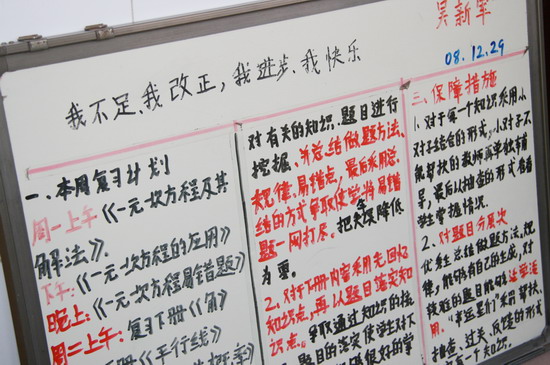 吴新军
08.12.29
我不足、我改正,我进步、我快乐
一、本周复习计划
周一上午《一元一次方程及其
解法》.
下午:《一元一次方程的应用》
晚上:《一元一次方程易错题》
周二上午:复习下册《角》
册《平行线》
对有关的知识、题目进行
挖掘、并总结做题方法、
规律、易错点,最后采用总
结的方式争取使学将易错
题一网打尽。把失降低
为零。
2、对于下册内容采用先回忆
知识点,再以题目落实知
识点。争取通过知识的挖
题目的落实使学生对下
很好的掌
三、保障措施
1、对于每一个知识采用小
对子结合的形式,小对子不
能帮扶的教师再单独辅
导,最后以抽查的形式看看
学生掌握情况.
2、对题目分层次
优差生总结做题方法、规
律,能够有自己的生成,对
较难的题目能够活学活
用。“幸运星们”采用帮扶、
抽查、过关、反馈的形式
有一个知识.